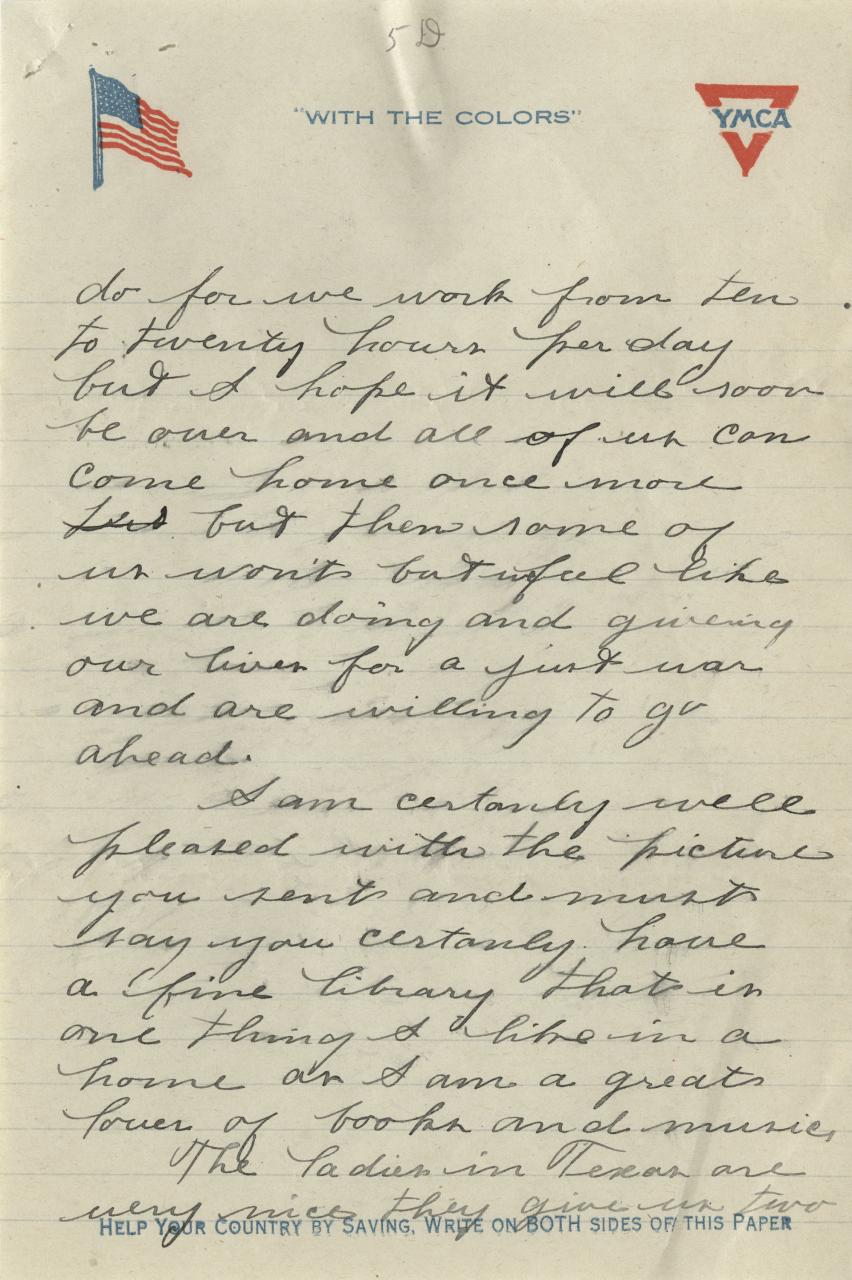 5 D
"WITH THE COLORS"
YMCA
do for we work from ten
to twenty hours per day
but I hope it will soon
be over and all of us can
come home once more
but then some of
us wont but feel like
we are doing and giveing
our lives for a just war
and are willing to go
ahead.
I am certanly well
pleased with the picture
you sent and must
say you certanly have
a fine library that is
one thing I like in a
home as I am a great
lover of books and music,
The ladies in Texas are
very nice they give us two
HELP YOUR COUNTRY BY SAVING, WRITE ON BOTH SIDES OF THIS PAPER